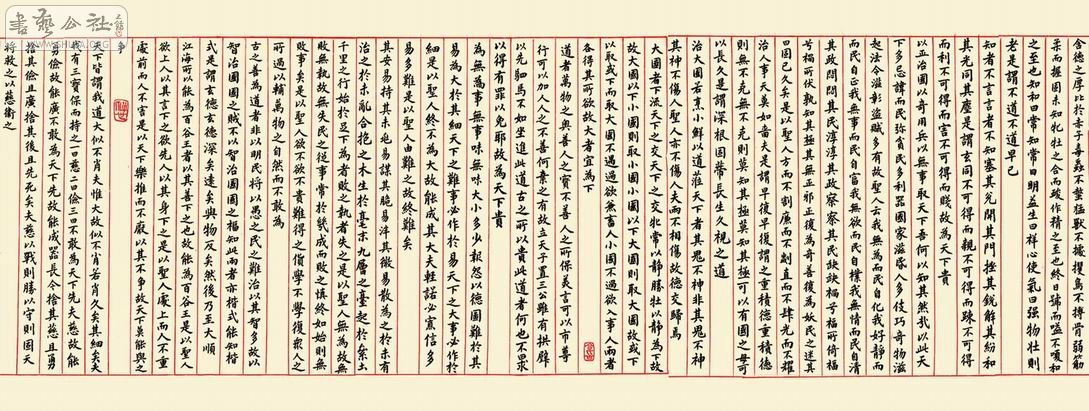 含德之厚比於赤子毒蟲不螫猛獸不據攫鳥不搏骨弱筋
柔而握固未知牝牡之合而峻作精之至也終日號而嗌不嗄和
之至也知和曰常知常曰明益生曰祥心使氣曰强物壯則
老是謂不道不道早已
知者不言言者不知塞其兌閉其門挫其銳解其紛和
其光同其塵是謂玄同不可得而親不可得而踈不可得
而利不可得而害不可得而賤故為天下貴
以正治國以奇用兵以無事取天下吾何以知其然哉以此天
下多忌諱而民弥貧民多利器國家滋昏人多伎巧奇物滋
起法令滋彰盜賊多有故聖人云我無為而民自化我好靜而
民自正我無事而民自富我無欲而民自樸我無情而民自清
其政悶悶其民淳淳其政察察其民缺缺禍兮福所倚福
兮禍所伏孰知其極其無正邪正復為奇善復為妖民之迷其
日固已久矣是以聖人方而不割廉而不劌直而不肆光而不耀
治人事天莫如嗇夫唯嗇是謂早復早復謂之重積德重積德
則無不克無不克則莫知其極莫知其極可以有國之母可
以長久是謂深根固蔕長生久視之道
治大國若烹小鮮以道莅天下者其鬼不神非其鬼不神
其神不傷人聖人亦不傷人夫兩不相傷故德交歸焉
大國者下流天下之交天下之交牝常以靜勝牡以靜為下故
故大國以下小國則取小國小國以下大國則取大國故或下
以取或下而取大國不過欲兼畜人小國不過欲入事人兩者
各得其所欲故大者宜為下
道者萬物之奧善人之寶不善人之所保美言可以市尊
行可以加人人之不善何棄之有故立天子置三公雖有拱璧
以先駟馬不如坐進此道古之所以貴此道者何也不曰求
以得有罪以免耶故為天下貴
為無為事無事味無味大小多少報怨以德圖難於其
易為大於其細天下之難事必作於易天下之大事必作於
細是以聖人終不為大故能成其大夫輕諾必寡信多
易多難是以聖人由難之故終難矣
其安易持其未兆易謀其脆易泮其微易散為之於未有
治之於未亂合抱之木生於毫末九層之臺起於累土
千里之行始於足下為者敗之執者失之是以聖人無為故無
敗無執故無失民之從事常於幾成而敗之慎終如始則無
敗事矣是以聖人欲不欲不貴難得之貨學不學復眾人之
所過以輔萬物之自然而不敢為
古之善為道者非以明民將以愚之民之難治以其智多故以
智治國國之賊不以智治國國之福知此兩者亦楷式能知楷
式是謂玄德玄德深矣遠矣與物反矣然後乃至大順
江海所以能為百谷王者以其善下之也故能為百谷王是以聖人
欲上人以其言下之欲先人以其身下之是以聖人處上而人不重
處前而人不害是以天下樂推而不厭以其不爭故天下莫能與之
爭
天下皆謂我道大似不肖夫惟大故似不肖若肖久矣其細矣夫
我有三寶保而持之一曰慈二曰儉三曰不敢為天下先夫慈故能
勇儉故能廣不敢為天下先故能成器長今捨其慈且勇
捨其儉且廣捨其後且先死矣夫慈以戰則勝以守則固天
將救之以慈衛之
書藝公社